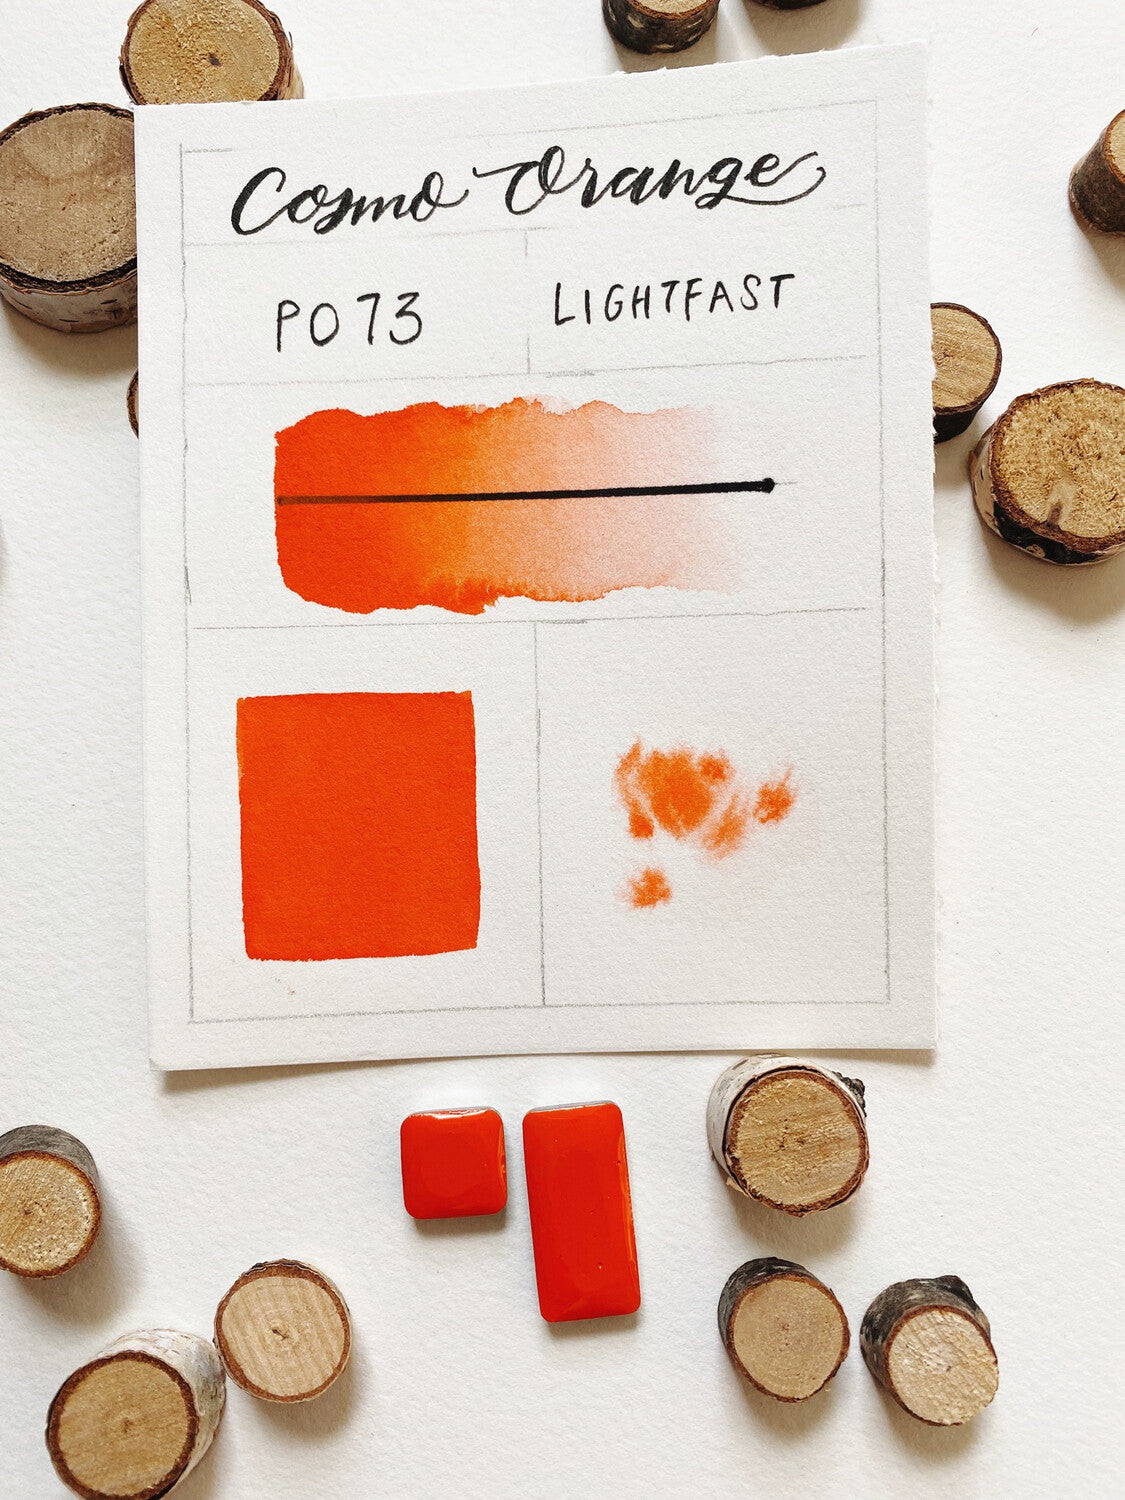 Cosmo Orange
PO73 LIGHTFAST